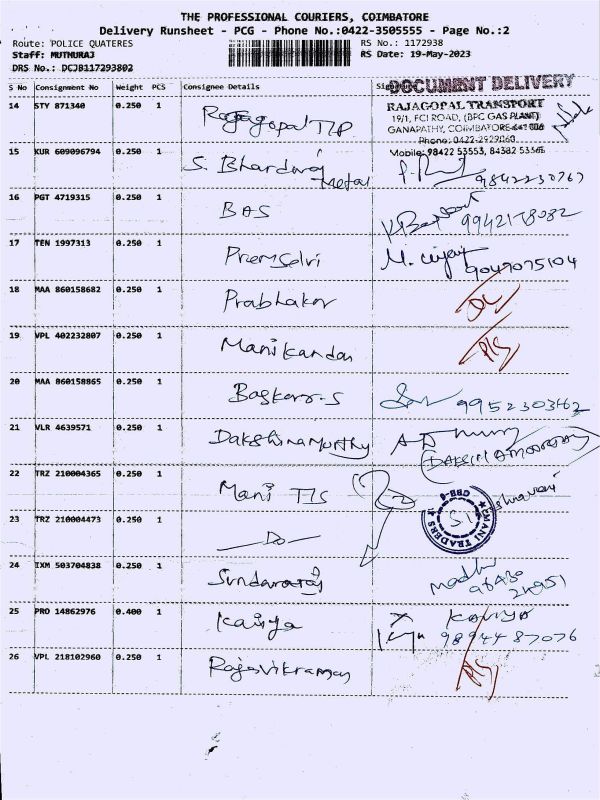 THE PROFESSIONAL COURIERS, COIMBATORE
Delivery Runsheet - PCG - Phone No.:0422-3505555 - Page No.:2
Route: POLICE QUATERES RS No.: 1172938
Staff: MUTHURAJ RS Date: 19-May-2023
DRS No.: DCJB117293802
S No Consignment No Weight PCS Consignee Details
DOCUMENT DELIVERY
14 STY 871340 0.250 1 Rajagopal T/P
RAJAGOPAL TRANSPORT
19/1, FCI ROAD, (BPC GAS PLANT)
GANAPATHY, COIMBATORE-641 006
Phone: 0422-2929060
Mobile: 98422 53553, 84382 53565
15 KUR 609096794 0.250 1 S. Bhardwaj Metal 9842230767
16 PGT 4719315 0.250 1 BAS 9942178082
17 TEN 1997313 0.250 1 Premselvi M. Vijay 9047075104
18 MAA 860158682 0.250 1 Prabhakar
19 VPL 402232807 0.250 1 Manikandan
20 MAA 860158865 0.250 1 Baskar.S 9952303462
21 VLR 4639571 0.250 1 Dakshinamurthy
(DAKSHINAMOORTHY)
22 TRZ 210004365 0.250 1 Mani T/S
MANI TRADERS
CBB-6
23 TRZ 210004473 0.250 1 — Do —
24 IXM 503704838 0.250 1 Sundararaj Madhu
98430
25 PRO 14862976 0.400 1 Kaviya Kaviya
9894487076
26 VPL 218102960 0.250 1 Rajavikraman